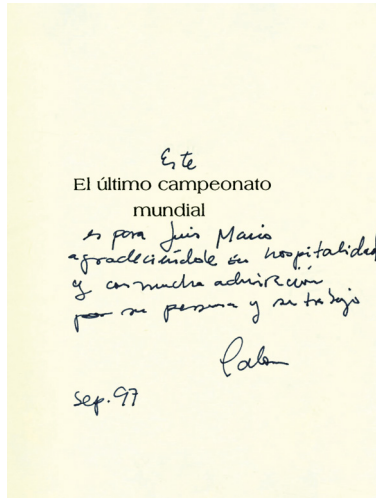 Este
El último campeonato
mundial
es para Luis Mario
agradeciéndole su hospitalidad
y con mucha admiración
por su persona y su trabajo
sep. 97